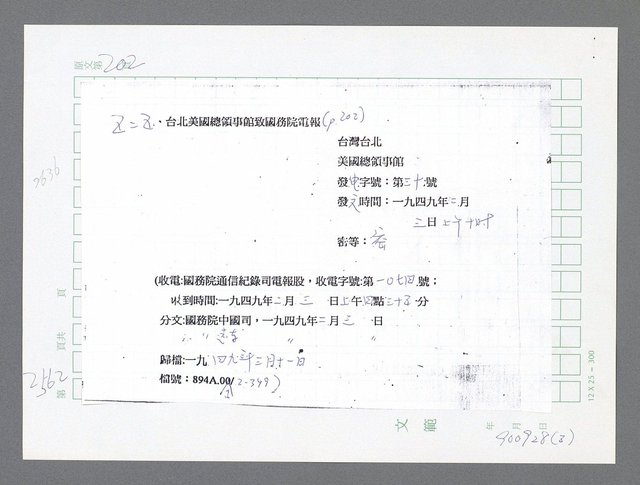 原文第 202
五二五、台北美國總領事館致國務院電報(p.202)
台灣台北
美國總領事館
發电字號：第三十號
發文時間：一九四九年二月
三日上午十時
密等：密
(收電:國務院通信紀錄司電報股，收電字號:第一〇七四號；
收到時間:一九四九年二月三日上午四點三十五分
分文:國務院中國司，一九四九年二月三日
歸檔:一九四九年三月十一日
檔號：894A.00/2-349)
頁
頁共
第
2562
2636
12 X 25 - 300
文範
年 月 日
900928(3)